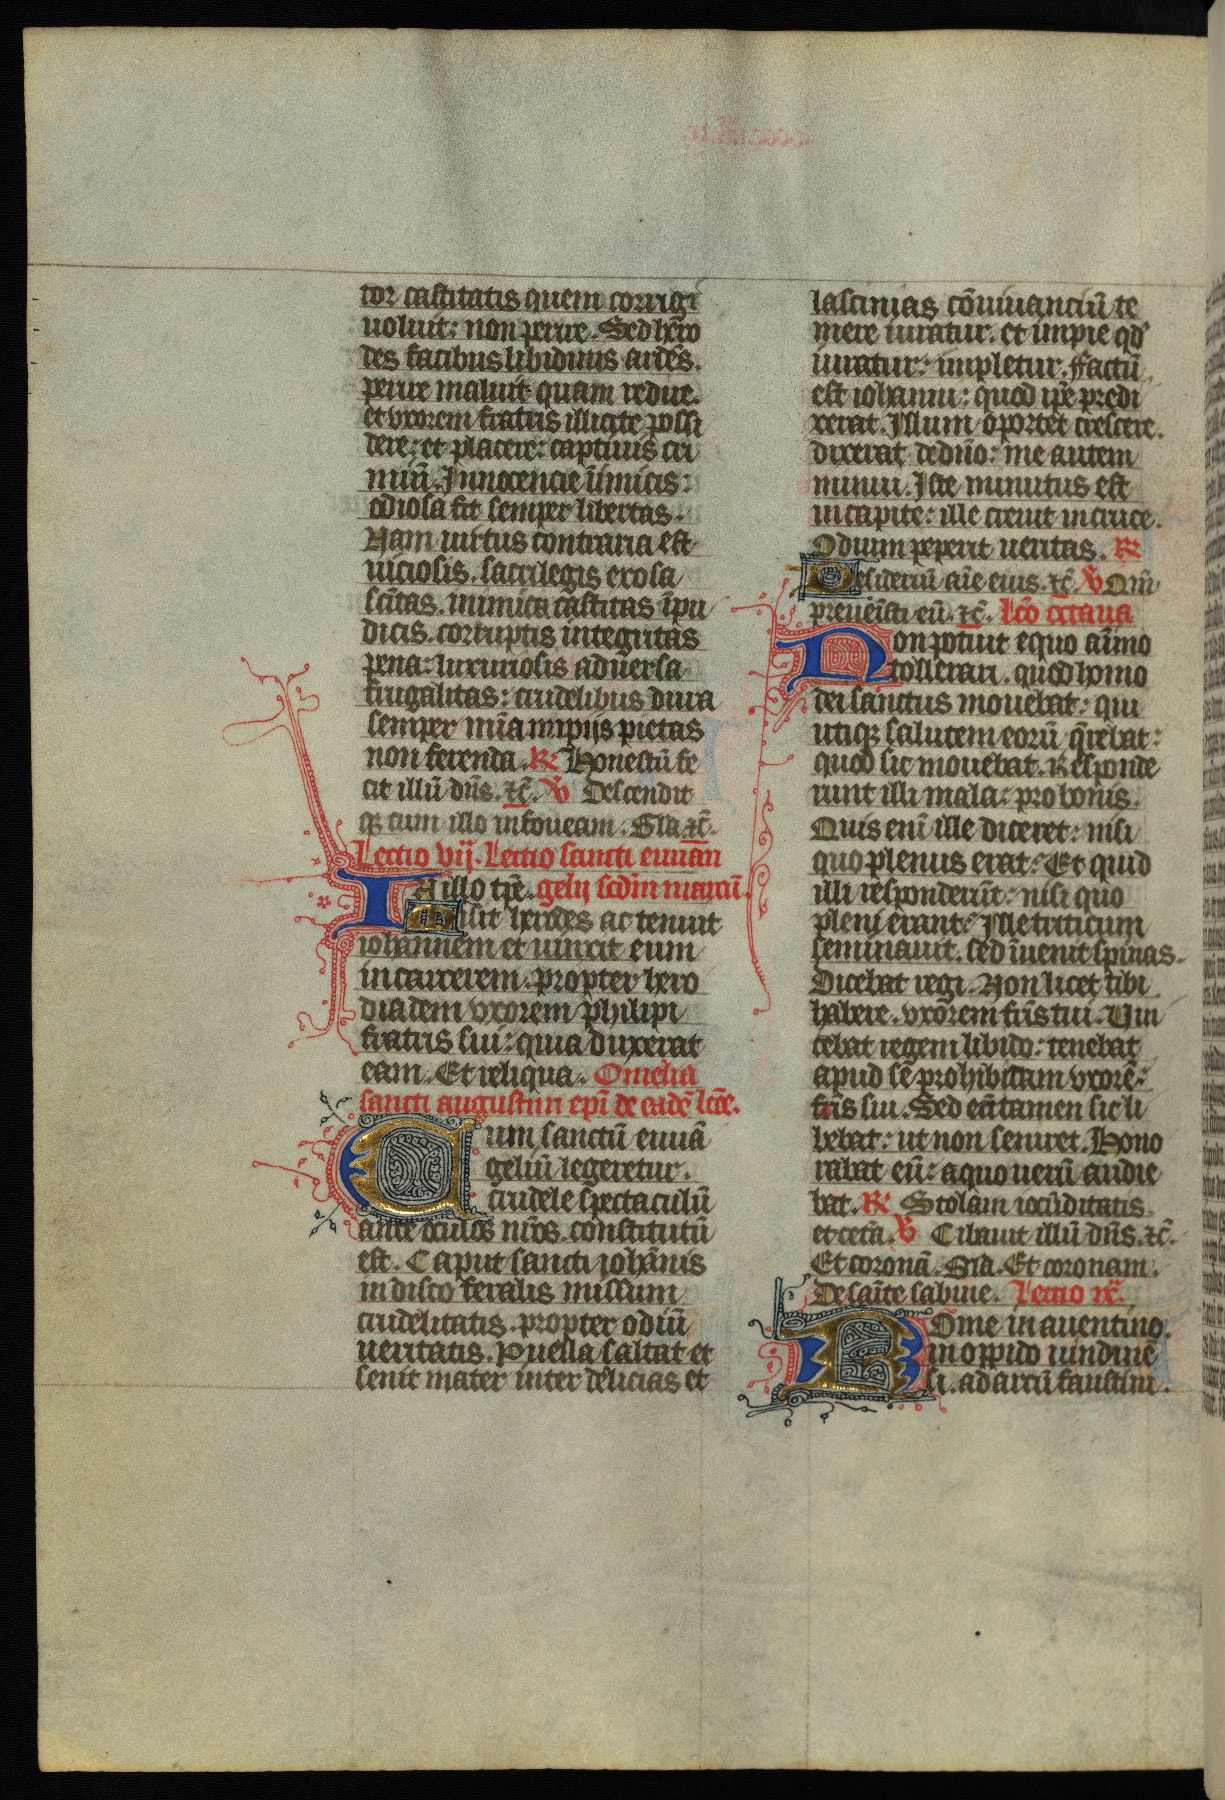 tor castitatis quem corrigi
uoluit: non perire. Sed hero
des facibus libidinis ardēs.
perire maluit quam redire.
et vxorem fratris illicite possi
dere: et placere: captiuus cri
minū. Innocencie inimicis:
odiosa fit semper libertas.
Nam uirtus contraria est
uiciosis. sacrilegis exosa
scītas. inimica castitas īpu
dicis. corruptis integritas
pena: luxuriosis aduersa
frugalitas: crudelibus dura
semper mīa impijs pietas
non ferenda. R Honestū fe
cit illū dn̄s. ⁊c̄. V Descendit
qꝫ cum illo in foueam. Gla ⁊c̄.
Lectio vij. Lectio sancti euuan
In illo tp̄e. gelij scdm marcū.
Misit herodes ac tenuit
iohannem et uinxit eum
in carcerem. propter hero
diadem vxorem philipi
fratris sui: quia duxerat
eam. Et reliqua. Omelia
sancti augustini ep̄i de eadē lcc̄e.
Cum sanctū euuā
geliū legeretur.
crudele spectaculū
ante oculos nr̄os. constitutū
est. Caput sancti iohānis
in disco feralis missum
crudelitatis. propter odiū
ueritatis. Puella saltat et
senit mater inter delicias et
lasciuias cōuiuanciū te
mere iuratur. et impie qd̄
iuratur: impletur. Factū
est iohanni: quod ip̄e predi
xerat. Illum oportet crescere.
dixerat de dn̄o: me autem
minui. Iste minutus est
in capite: ille creuit in cruce.
Odium peperit ueritas. R
Desideriū aīe eius. ⁊c̄. V Qm̄
preuenisti eū. ⁊c̄. Lc̄o octaua
Non potuit equo aīmo
tollerari. quod homo
dei sanctus mouebat: qui
utiqꝫ salutem eorū q̄rebat:
quod sic mouebat. Responde
runt illi mala: pro bonis.
Quis enī ille diceret: nisi
quo plenus erat: Et quid
illi responderūt: nisi quo
pleni erant: Ille triticum
seminauit. sed īuenit spinas.
Dicebat regi. Non licet tibi
habere. vxorem fr̄is tui. Vin
cebat regem libido: tenebat
apud sē prohibitam vxorē:
fr̄is sui. Sed eū tamen sic li
bebat: ut non seuiret. Hono
rabat eū: a quo uerū audie
bat. R Stolam iocūditatis
et cetā. V Cibauit illū dn̄s. ⁊c̄.
Et coronā. Gla. Et coronam.
De sancte sabine. Lectio ix.
Rome in auentino.
in oppido uindine
si. ad arcū faustini.